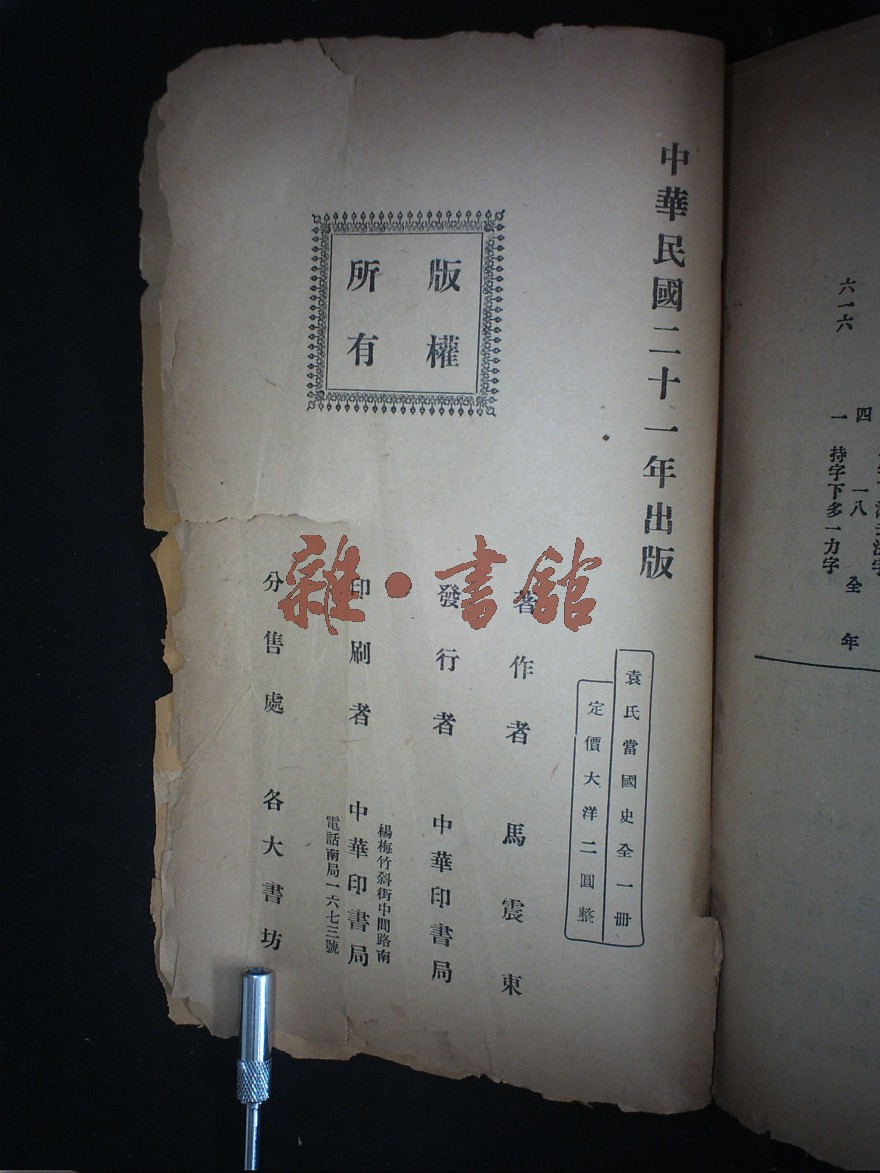 六一六
四　一八　全　年
一　持字下多一力字
中華民國二十一年出版
袁氏當國史全一冊
定價大洋二圓整
版權
所有
著作者　馬震東
發行者　中華印書局
楊梅竹斜街中間路南
印刷者　中華印書局
電話南局一六七三號
分售處　各大書坊
雜·書館